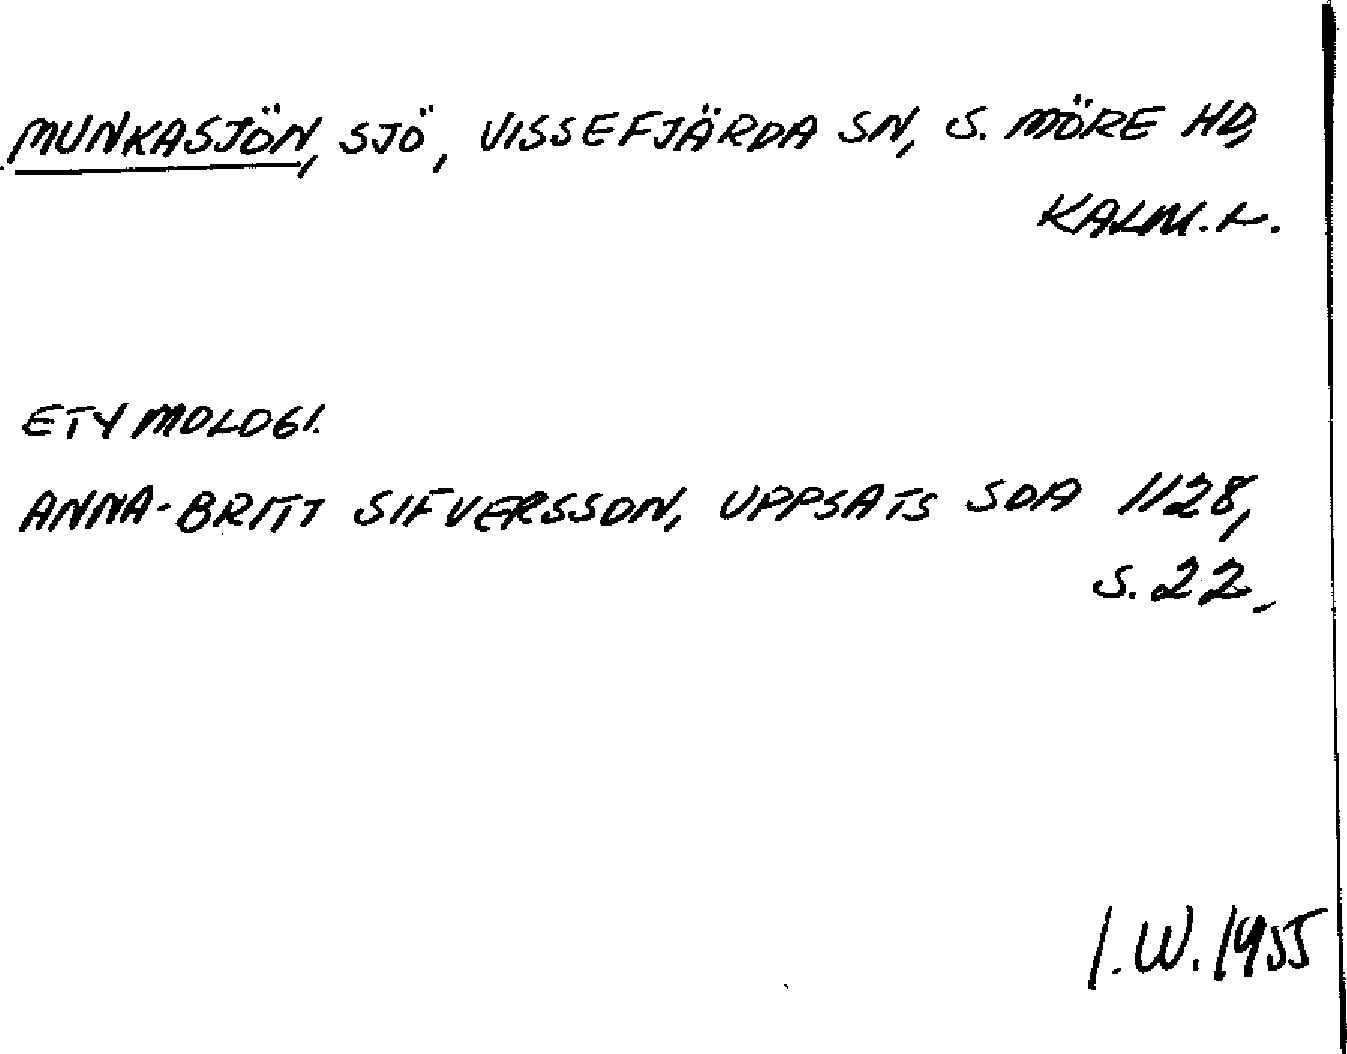 MUNKASJÖN, SJÖ, VISSEFJÄRDA SN, S. MÖRE HD,
KALM. L.
ETYMOLOGI.
ANNA-BRITT SIFVERSSON, UPPSATS SOA 1128,
S. 22.
I.W. 1955